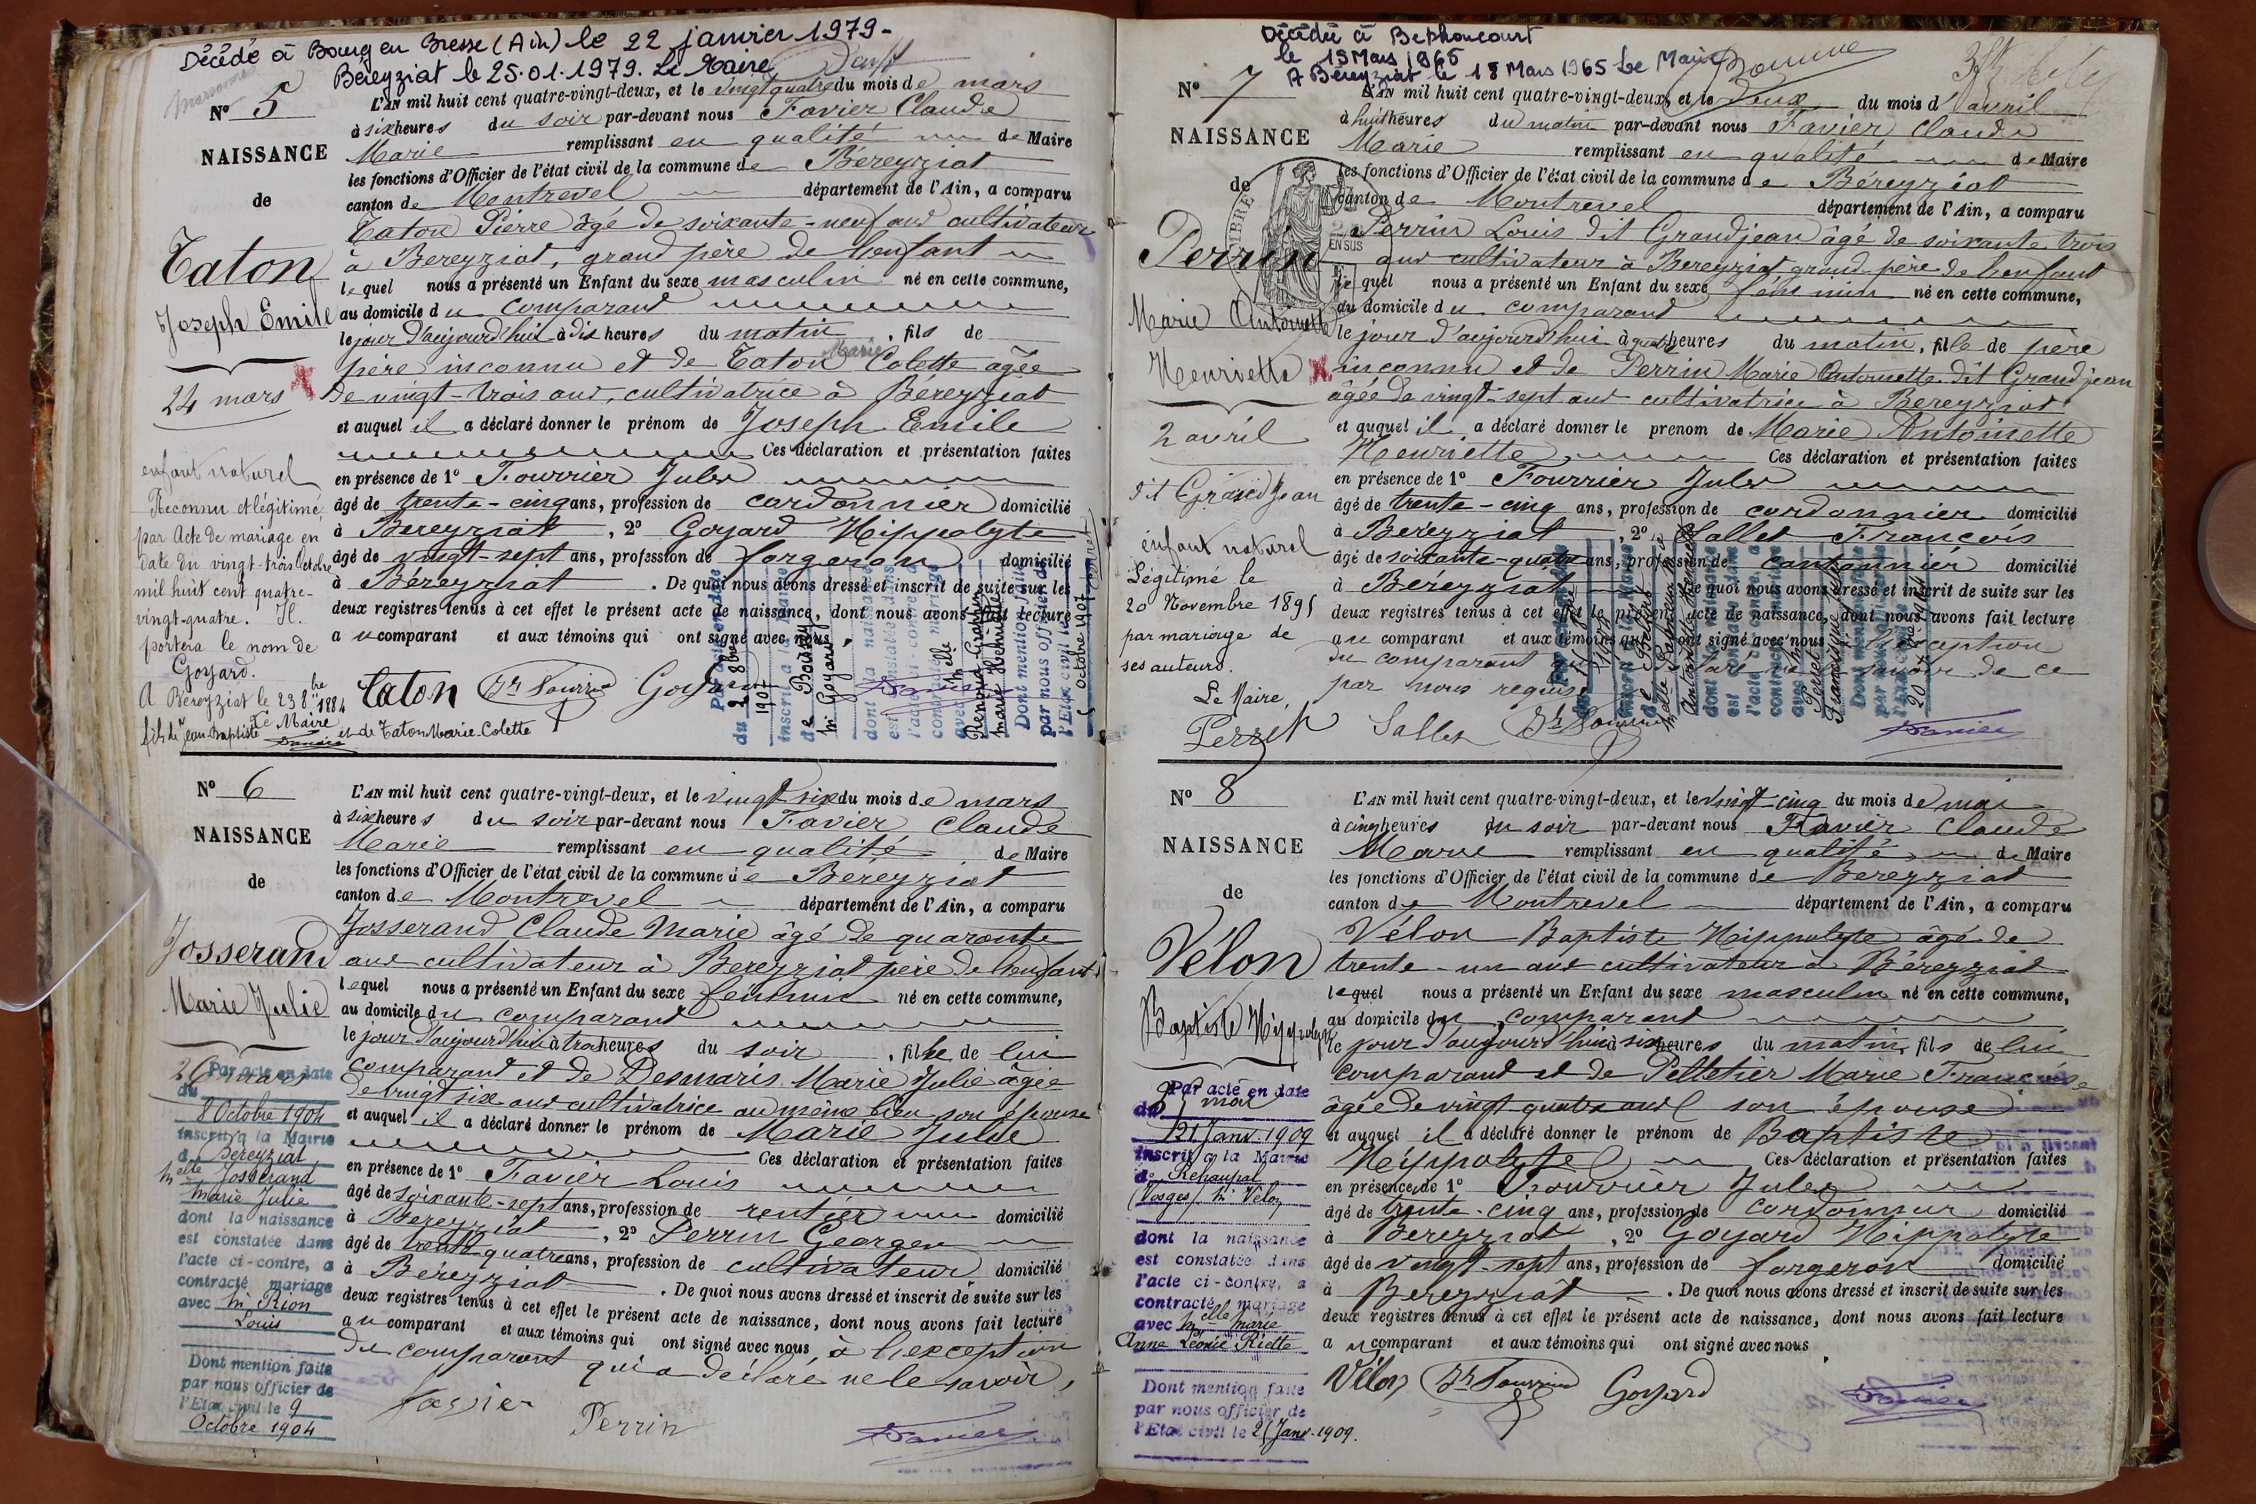 Décédé à Bourg en Bresse (Ain) le 22 janvier 1979 -
Béreyziat le 25.01.1979. Le Maire
N° 5
NAISSANCE
de
Taton
Joseph Emile
24 mars
enfant naturel
Reconnu et légitimé
par Acte de mariage en
date du vingt-trois octobre
mil huit cent quatre-
vingt-quatre. Il
portera le nom de
Goyard.
A Béreyziat le 23 8bre 1884
Le Maire
fils de Jean-Baptiste et de Taton Marie-Colette
L'AN mil huit cent quatre-vingt-deux, et le vingt quatre du mois de mars
à six heures du soir par-devant nous Favier Claude
Marie remplissant en qualité de Maire
les fonctions d'Officier de l'état civil de la commune de Béreyziat
canton de Montrevel département de l'Ain, a comparu
Taton Pierre âgé de soixante-neuf ans cultivateur
à Bereyziat, grand père de l'enfant
lequel nous a présenté un Enfant du sexe masculin né en cette commune,
au domicile du comparant
le jour d'aujourd'hui à dix heures du matin, fils de
père inconnu et de Taton Marie Colette âgée
de vingt-trois ans, cultivatrice à Béreyziat
et auquel il a déclaré donner le prénom de Joseph Emile
Ces déclaration et présentation faites
en présence de 1° Fourrier Jules
âgé de trente-cinq ans, profession de cordonnier domicilié
à Bereyziat, 2° Goyard Hippolyte
âgé de vingt-sept ans, profession de forgeron domicilié
à Béreyziat. De quoi nous avons dressé et inscrit de suite sur les
deux registres tenus à cet effet le présent acte de naissance, dont nous avons fait lecture
au comparant et aux témoins qui ont signé avec nous,
Taton Goyard
Par acte en date
du 2 8bre
1907
inscrit à la Mairie
de Boissey
Mr Goyard
dont la naissance
est constatée dans
l'acte ci-contre, a
contracté mariage
avec Melle
Marie Henriette
Dont mention faite
par nous officier de
l'Etat civil le
octobre 1907
N° 6
NAISSANCE
de
Josserand
Marie Julie
26 mars
Par acte en date
du
8 Octobre 1904
inscrit à la Mairie
de Béreyziat
Melle Josserand
Marie Julie
dont la naissance
est constatée dans
l'acte ci-contre, a
contracté mariage
avec Mr Rion
Louis
Dont mention faite
par nous officier de
l'Etat civil le 9
Octobre 1904
L'AN mil huit cent quatre-vingt-deux, et le vingt six du mois de mars
à six heures du soir par-devant nous Favier Claude
Marie remplissant en qualité de Maire
les fonctions d'Officier de l'état civil de la commune de Béreyziat
canton de Montrevel département de l'Ain, a comparu
Josserand Claude Marie âgé de quarante
ans cultivateur à Bereyziat père de l'enfant
lequel nous a présenté un Enfant du sexe féminin né en cette commune,
au domicile du comparant
le jour d'aujourd'hui à trois heures du soir, fille de lui
comparant et de Desmaris Marie Julie âgée
de vingt six ans cultivatrice au même lieu son épouse
et auquel il a déclaré donner le prénom de Marie Julie
Ces déclaration et présentation faites
en présence de 1° Favier Louis
âgé de soixante-sept ans, profession de rentier domicilié
à Bereyziat, 2° Perrin Georges
âgé de trente quatre ans, profession de cultivateur domicilié
à Béreyziat. De quoi nous avons dressé et inscrit de suite sur les
deux registres tenus à cet effet le présent acte de naissance, dont nous avons fait lecture
au comparant et aux témoins qui ont signé avec nous, à l'exception
du comparant qui a déclaré ne le savoir,
favier Perrin
Décédée à Bethoncourt
le 15 Mars 1965
A Béreyziat le 18 Mars 1965 Le Maire
N° 7
NAISSANCE
de
Perrin
Marie Antoinette
Henriette
2 avril
dit Grandjean
enfant naturel
Légitimé le
20 Novembre 1895
par mariage de
ses auteurs.
Le Maire,
L'AN mil huit cent quatre-vingt-deux, et le deux du mois d'avril
à huit heures du matin par-devant nous Favier Claude
Marie remplissant en qualité de Maire
les fonctions d'Officier de l'état civil de la commune de Béreyziat
canton de Montrevel département de l'Ain, a comparu
Perrin Louis dit Grandjean âgé de soixante trois
ans cultivateur à Bereyziat grand-père de l'enfant
lequel nous a présenté un Enfant du sexe féminin né en cette commune,
au domicile du comparant
le jour d'aujourd'hui à quatre heures du matin, fille de père
inconnu et de Perrin Marie Antoinette dit Grandjean
âgée de vingt-sept ans cultivatrice à Bereyziat
et auquel il a déclaré donner le prenom de Marie Antoinette
Henriette Ces déclaration et présentation faites
en présence de 1° Fourrier Jules
âgé de trente-cinq ans, profession de cordonnier domicilié
à Béreyziat, 2° Sallet François
âgé de soixante-quatre ans, profession de cantonnier domicilié
à Bereyziat De quoi nous avons dressé et inscrit de suite sur les
deux registres tenus à cet effet le présent acte de naissance, dont nous avons fait lecture
au comparant et aux témoins qui ont signé avec nous à l'exception
du comparant de ce
par nous requis.
Sallet
N° 8
NAISSANCE
de
Vélon
Baptiste Hippolyte
25 mai
Par acte en date
du
21 Janv. 1909
inscrit à la Mairie
de Rehaupal
(Vosges) Mr Vélon
dont la naissance
est constatée dans
l'acte ci-contre, a
contracté mariage
avec Melle Marie
Anne Léonie Riette
Dont mention faite
par nous officier de
l'Etat civil le 25 Janv. 1909.
L'AN mil huit cent quatre-vingt-deux, et le vingt-cinq du mois de mai
à cinq heures du soir par-devant nous Favier Claude
Marie remplissant en qualité de Maire
les fonctions d'Officier de l'état civil de la commune de Bereyziat
canton de Montrevel département de l'Ain, a comparu
Vélon Baptiste Hippolyte âgé de
trente-un ans cultivateur à Béreyziat
lequel nous a présenté un Enfant du sexe masculin né en cette commune,
au domicile du comparant
le jour d'aujourd'hui à six heures du matin, fils de lui
comparant et de Pelletier Marie Françoise
âgée de vingt quatre ans son épouse
et auquel il a déclaré donner le prénom de Baptiste
Hippolyte Ces déclaration et présentation faites
en présence de 1° Fourrier Jules
âgé de trente-cinq ans, profession de cordonnier domicilié
à Bereyziat, 2° Goyard Hippolyte
âgé de vingt-sept ans, profession de forgeron domicilié
à Bereyziat. De quoi nous avons dressé et inscrit de suite sur les
deux registres tenus à cet effet le présent acte de naissance, dont nous avons fait lecture
au comparant et aux témoins qui ont signé avec nous.
Vélon Goyard